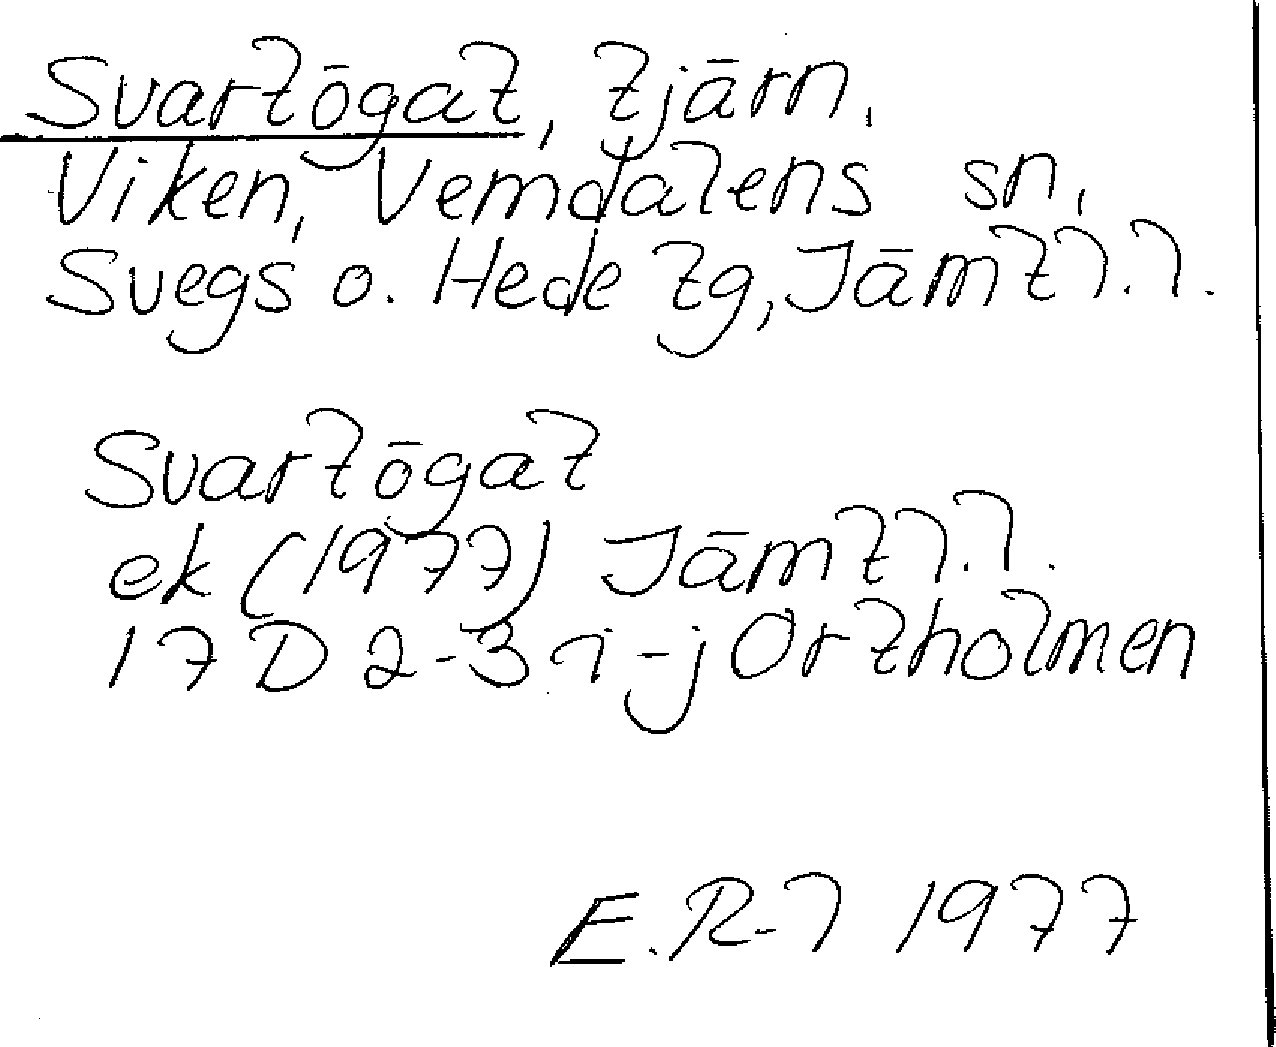 Svartögat, tjärn.
Viken, Vemdalens sn,
Svegs o. Hede tg, Jämtl.l.
Svartögat
ek (1977) Jämtl.l.
17 D 2-3 i-j Ortholmen
E.R-l 1977